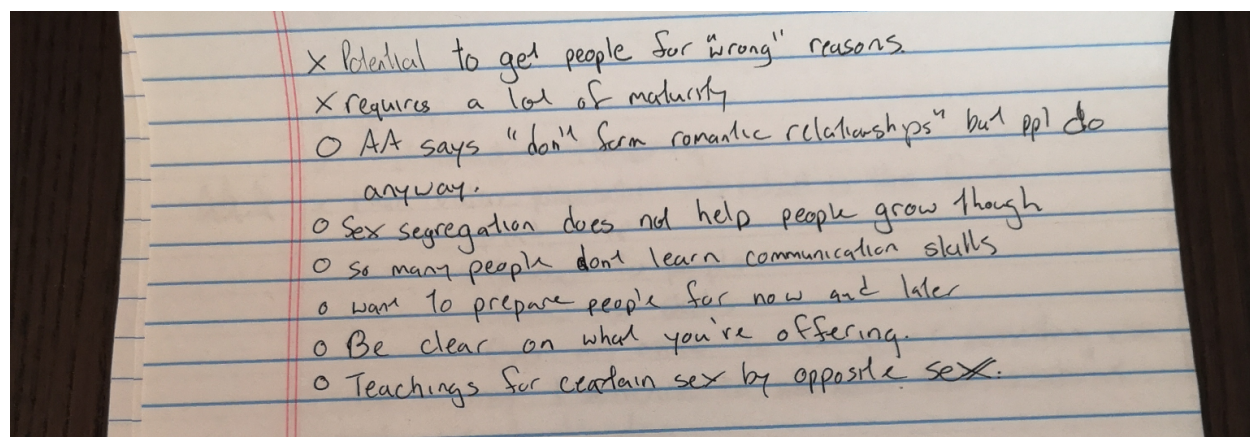 x Potential to get people for "wrong" reasons.
x requires a lot of maturity
o AA says "don't form romantic relationships" but ppl do
anyway.
o Sex segregation does not help people grow though
o so many people dont learn communication skills
o want to prepare people for now and later
o Be clear on what you're offering.
o Teachings for ceartain sex by opposite sex.